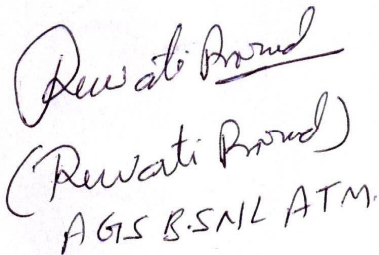 Rewati Prasad
(Rewati Prasad)
AGS BSNL ATM.